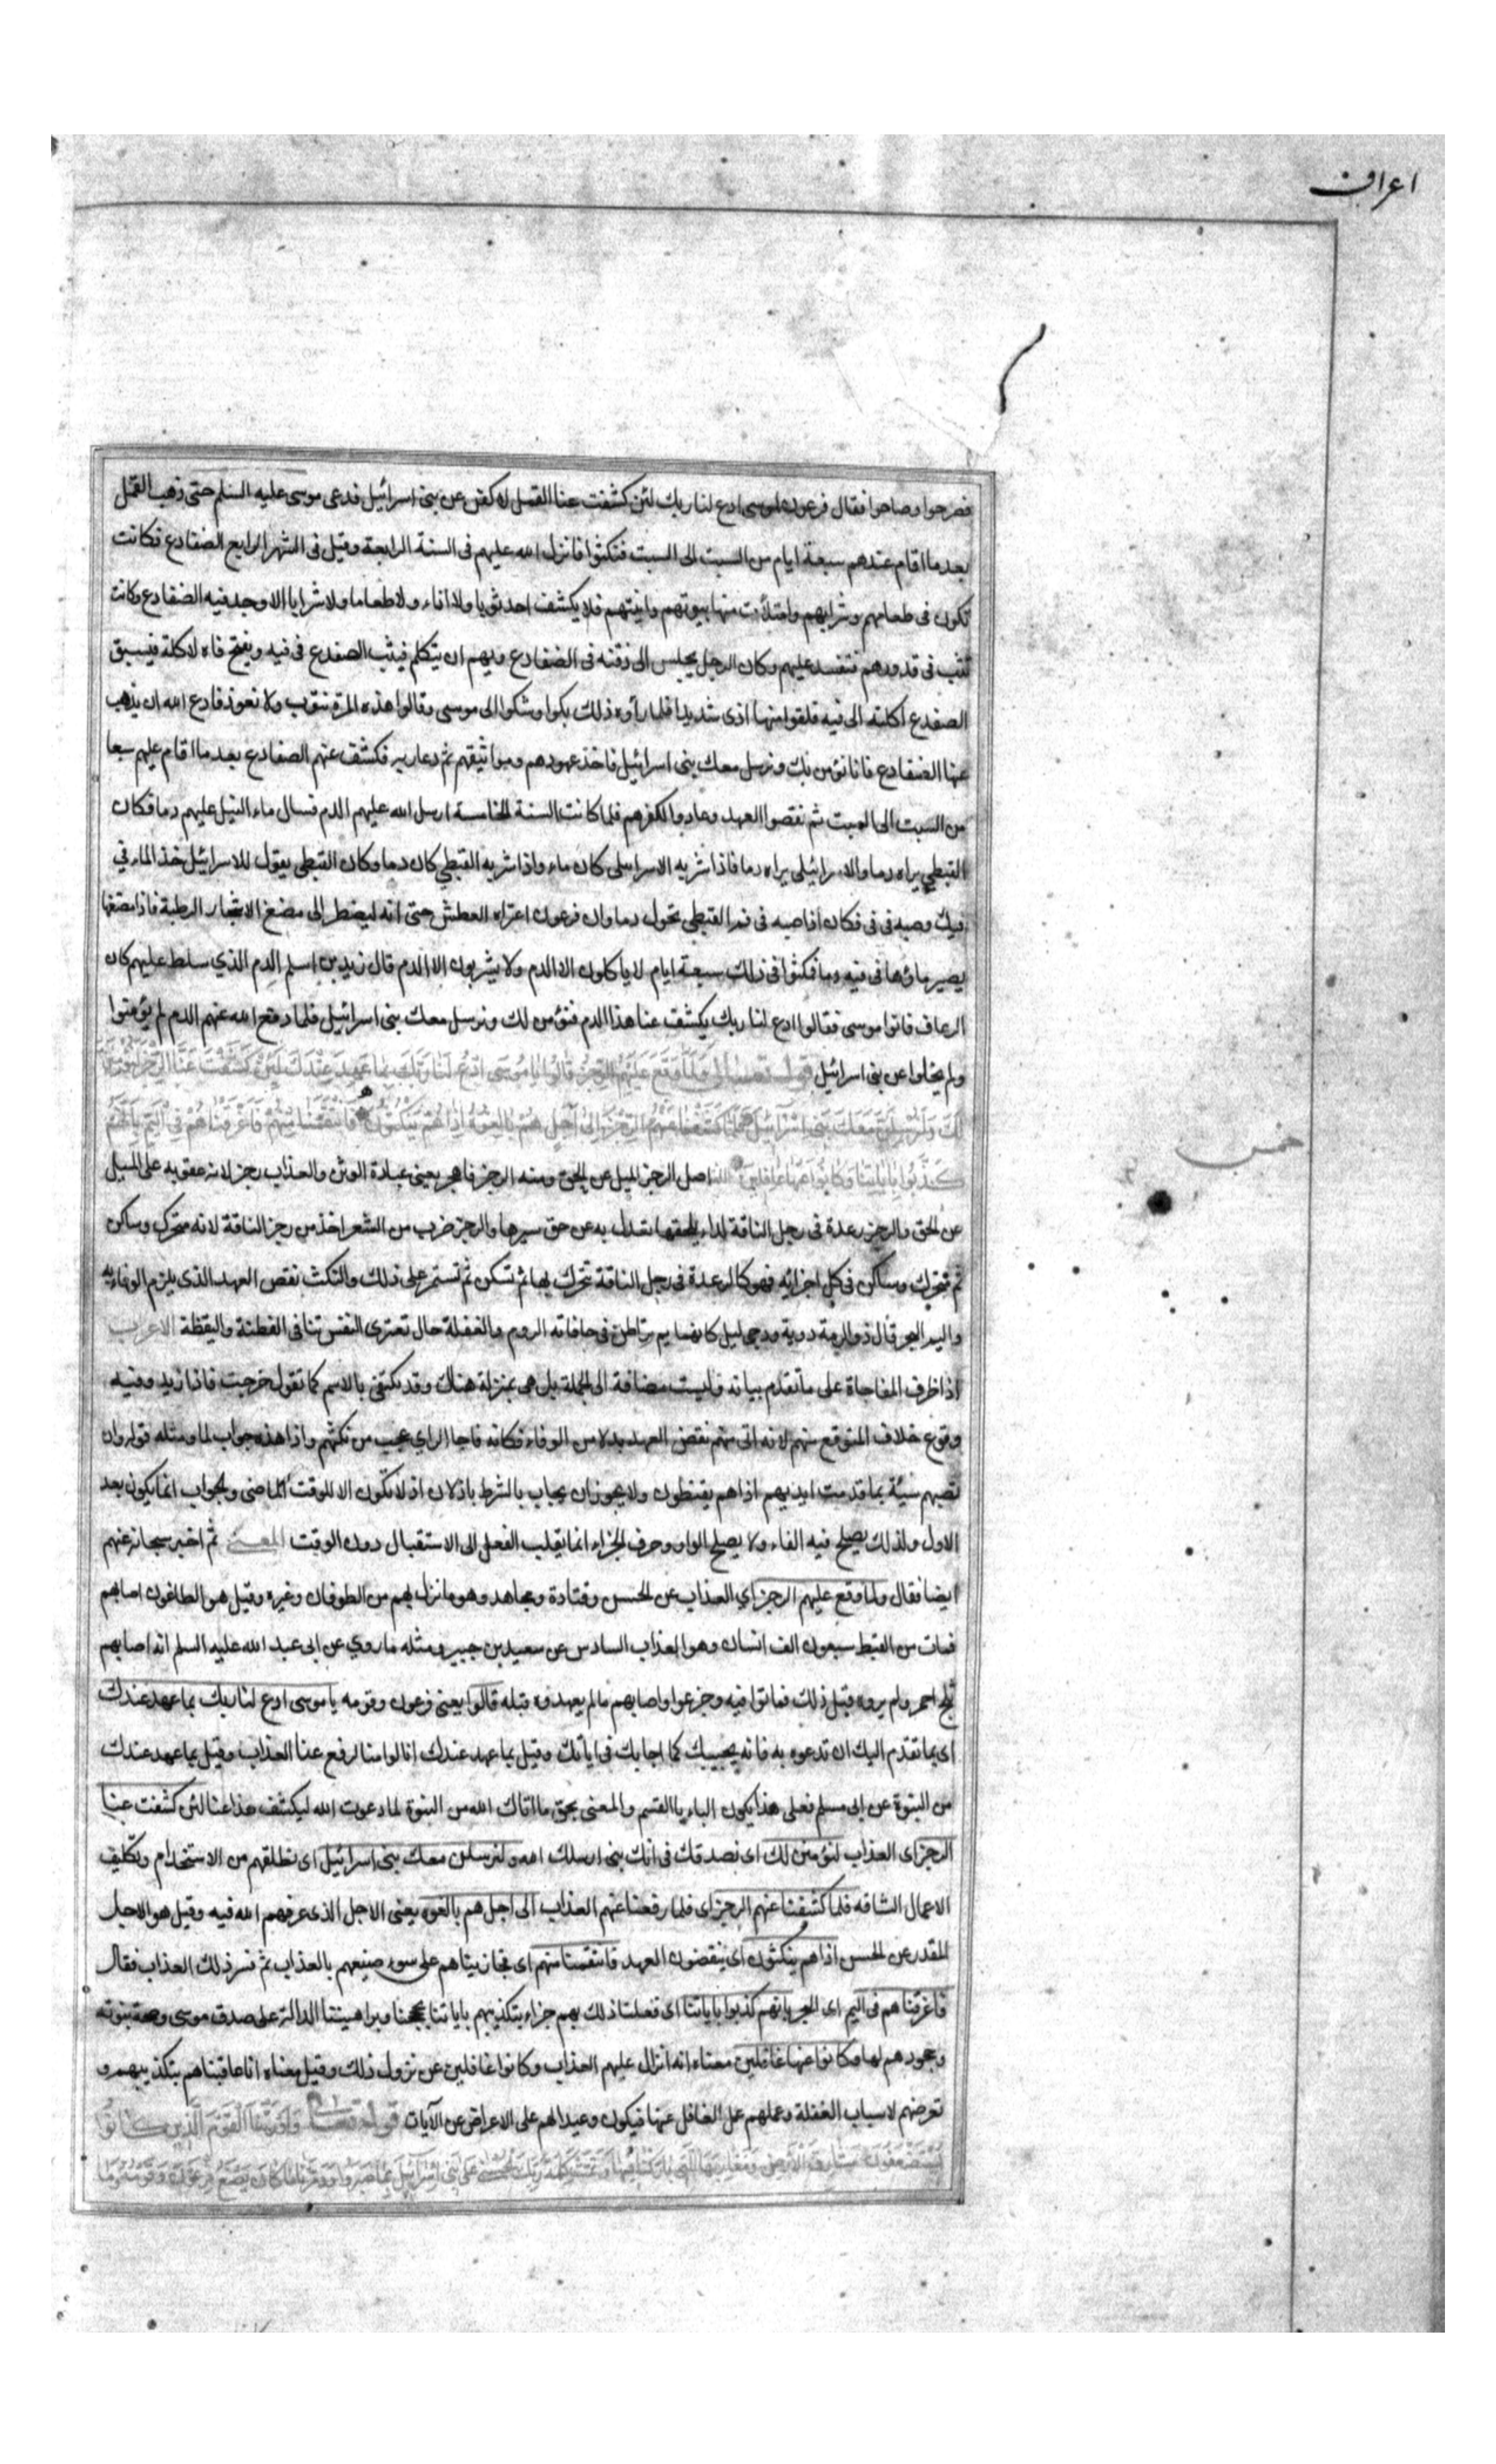 اعراف
فصرخوا وصاحوا فقال فرعون لموسى ادع لنا ربك لئن كشفت عنا القمل لاكفن عن بنى اسرائيل فدعى موسى عليه السلم حتى ذهب القمل
بعد ما اقام عندهم سبعة ايام من السبت الى السبت فنكثوا فانزل الله عليهم فى السنة الرابعة وقيل فى الشهر الرابع الضفادع فكانت
تكون فى طعامهم وشرابهم وامتلأت منها بيوتهم وانيتهم فلا يكشف احد ثوبا ولا اناء ولا طعاما ولا شرابا الا وجد فيه الضفادع وكانت
تثب فى قدورهم فتفسد عليهم وكان الرجل يجلس الى ذقنه فى الضفادع ويهم ان يتكلم فيثب الضفدع فى فيه ويفتح فاه لاكلة فيسبق
الضفدع اكلته الى فيه فلقوا منها اذى شديدا فلما رأوه ذلك بكوا وشكوا الى موسى وقالوا هذه المرة نتوب ولا نعود فادع الله ان يذهب
عنا الضفادع فانا نؤمن بك ونرسل معك بنى اسرائيل فاخذ عهودهم ومواثيقهم ثم دعا ربه فكشف عنهم الضفادع بعد ما اقام عليهم سبعا
من السبت الى السبت ثم نقضوا العهد وعادوا لكفرهم فلما كانت السنة الخامسة ارسل الله عليهم الدم فسال ماء النيل عليهم دما فكان
القبطي يراه دما والاسرائيلى يراه دما فاذا شربه الاسرايلى كان ماء واذا شربه القبطي كان دما وكان القبطى يقول للاسرائيلى خذ الماء في
فيك وصبه فى فى فكان اذا صبه فى فم القبطى تحول دما وان فرعون اعتراه العطش حتى انه ليضطر الى مضغ الاشجار الرطبة فاذا مضغها
يصير ماؤها فى فيه دما فمكثوا فى ذلك سبعة ايام لا ياكلون الا الدم ولا يشربون الا الدم قال زيد بن اسلم الدم الذي سلط عليهم كان
الرعاف فاتوا موسى فقالوا ادع لنا ربك يكشف عنا هذا الدم فنؤمن لك ونرسل معك بنى اسرائيل فلما دفع الله عنهم الدم لم يؤمنوا
ولم يخلوا عن بنى اسرائيل قوله تعالى وَلَمَّا وَقَعَ عَلَيْهِمُ الرِّجْزُ قَالُوا يَا مُوسَى ادْعُ لَنَا رَبَّكَ بِمَا عَهِدَ عِنْدَكَ لَئِنْ كَشَفْتَ عَنَّا الرِّجْزَ لَنُؤْمِنَنَّ
لَكَ وَلَنُرْسِلَنَّ مَعَكَ بَنِي اسْرَآئِيلَ فَلَمَّا كَشَفْنَا عَنْهُمُ الرِّجْزَ اِلَى أَجَلٍ هُمْ بَالِغُوهُ اِذَا هُمْ يَنْكُثُونَ فَانْتَقَمْنَا مِنْهُمْ فَاَغْرَقْنَاهُمْ فِي الْيَمِّ بِاَنَّهُمْ
كَذَّبُوا بِاٰيَاتِنَا وَكَانُوا عَنْهَا غَافِلِينَ اصل الرجز الميل عن الحق ومنه الرجز فاهجر يعنى عبادة الوثن والعذاب رجز لانه عقوبه على الميل
خمس
عن الحق والرجز رعدة فى رجل الناقة لداء يلحقها تعدل به عن حق سيرها والرجز ضرب من الشعر اخذ من رجز الناقة لانه متحرك وساكن
ثم متحرك وساكن فى كل اجزائه فهو كالرعدة فى رجل الناقة تتحرك بها ثم تسكن ثم تستمر على ذلك والنكث نقض العهد الذى يلزم الوفاء به
واليم البحر قال ذو الرمة دوية ودجى ليل كانهما يم تراطن فى حافاته الروم والغفلة حال تعترى النفس تنافى الفطنة واليقظة الاعراب
اذا ظرف المفاجاة على ما تقدم بيانه وليست مضافة الى الجملة بل هى بمنزلة هناك وقد يكتفى بالاسم كما تقول خرجت فاذا زيد وفيه
وقوع خلاف المتوقع منهم لانه اتى منهم نقض العهد بدلا من الوفاء فكانه فاجا الراي عجب من نكثهم واذا هذه جواب لما ومثله قوله وان
تصبهم سيئة بما قدمت ايديهم اذا هم يقنطون ولا يجوز ان يجاب بالشرط باذ لان اذ لا تكون الا للوقت الماضى والجواب انما يكون بعد
الاول ولذلك يصلح فيه الفاء ولا يصلح الواو وحرف الجزاء انما يقلب الفعل الى الاستقبال دون الوقت المعنى ثم اخبر سبحانه عنهم
ايضا فقال ولما وقع عليهم الرجز اي العذاب عن الحسن وقتادة ومجاهد وهو ما نزل بهم من الطوفان وغيره وقيل هو الطاعون اصابهم
فمات من القبط سبعون الف انسان وهو العذاب السادس عن سعيد بن جبير ومثله ما روي عن ابى عبد الله عليه السلم انه اصابهم
ثلج احمر ولم يروه قبل ذلك فماتوا فيه وجزعوا واصابهم ما لم يعهدوه قبله قالوا يعنى فرعون وقومه يا موسى ادع لنا ربك بما عهد عندك
اى بما تقدم اليك ان تدعوه به فانه يجيبك كما اجابك فى اياتك وقيل بما عهد عندك انا لو امنا لرفع عنا العذاب وقيل بما عهد عندك
من النبوة عن ابى مسلم فعلى هذا يكون الباء باء القسم والمعنى بحق ما اتاك الله من النبوة لما دعوت الله ليكشف هذا عنا لئن كشفت عنا
الرجز اى العذاب لنؤمنن لك اى نصدقك فى انك نبى ارسلك الله ولنرسلن معك بنى اسرائيل اى نطلقهم من الاستخدام وتكليف
الاعمال الشاقه فلما كشفنا عنهم الرجز اى فلما رفعنا عنهم العذاب الى اجل هم بالغوه يعنى الاجل الذى عرفهم الله فيه وقيل هو الاجل
المقدر عن الحسن اذا هم ينكثون اى ينقضون العهد فانتقمنا منهم اى فجازيناهم على سوء صنيعهم بالعذاب ثم فسر ذلك العذاب فقال
فاغرقناهم فى اليم اى البحر بانهم كذبوا باياتنا اى فعلنا ذلك بهم جزاء بتكذيبهم باياتنا بحججنا وبراهيننا الدالة على صدق موسى وصحة نبوته
وجحودهم لها وكانوا عنها غافلين معناه انه انزل عليهم العذاب وكانوا غافلين عن نزول ذلك وقيل معناه انا عاقبناهم بتكذيبهم و
تعرضهم لاسباب الغفلة وعملهم عمل الغافل عنها فيكون وعيدا لهم على الاعراض عن الآيات قوله تعالى وَاَوْرَثْنَا الْقَوْمَ الَّذِينَ كَانُوا
يُسْتَضْعَفُونَ مَشَارِقَ الْاَرْضِ وَمَغَارِبَهَا الَّتِي بَارَكْنَا فِيهَا وَتَمَّتْ كَلِمَةُ رَبِّكَ الْحُسْنَى عَلَى بَنِي اِسْرَآئِيلَ بِمَا صَبَرُوا وَدَمَّرْنَا مَا كَانَ يَصْنَعُ فِرْعَوْنُ وَقَوْمُهُ وَمَا